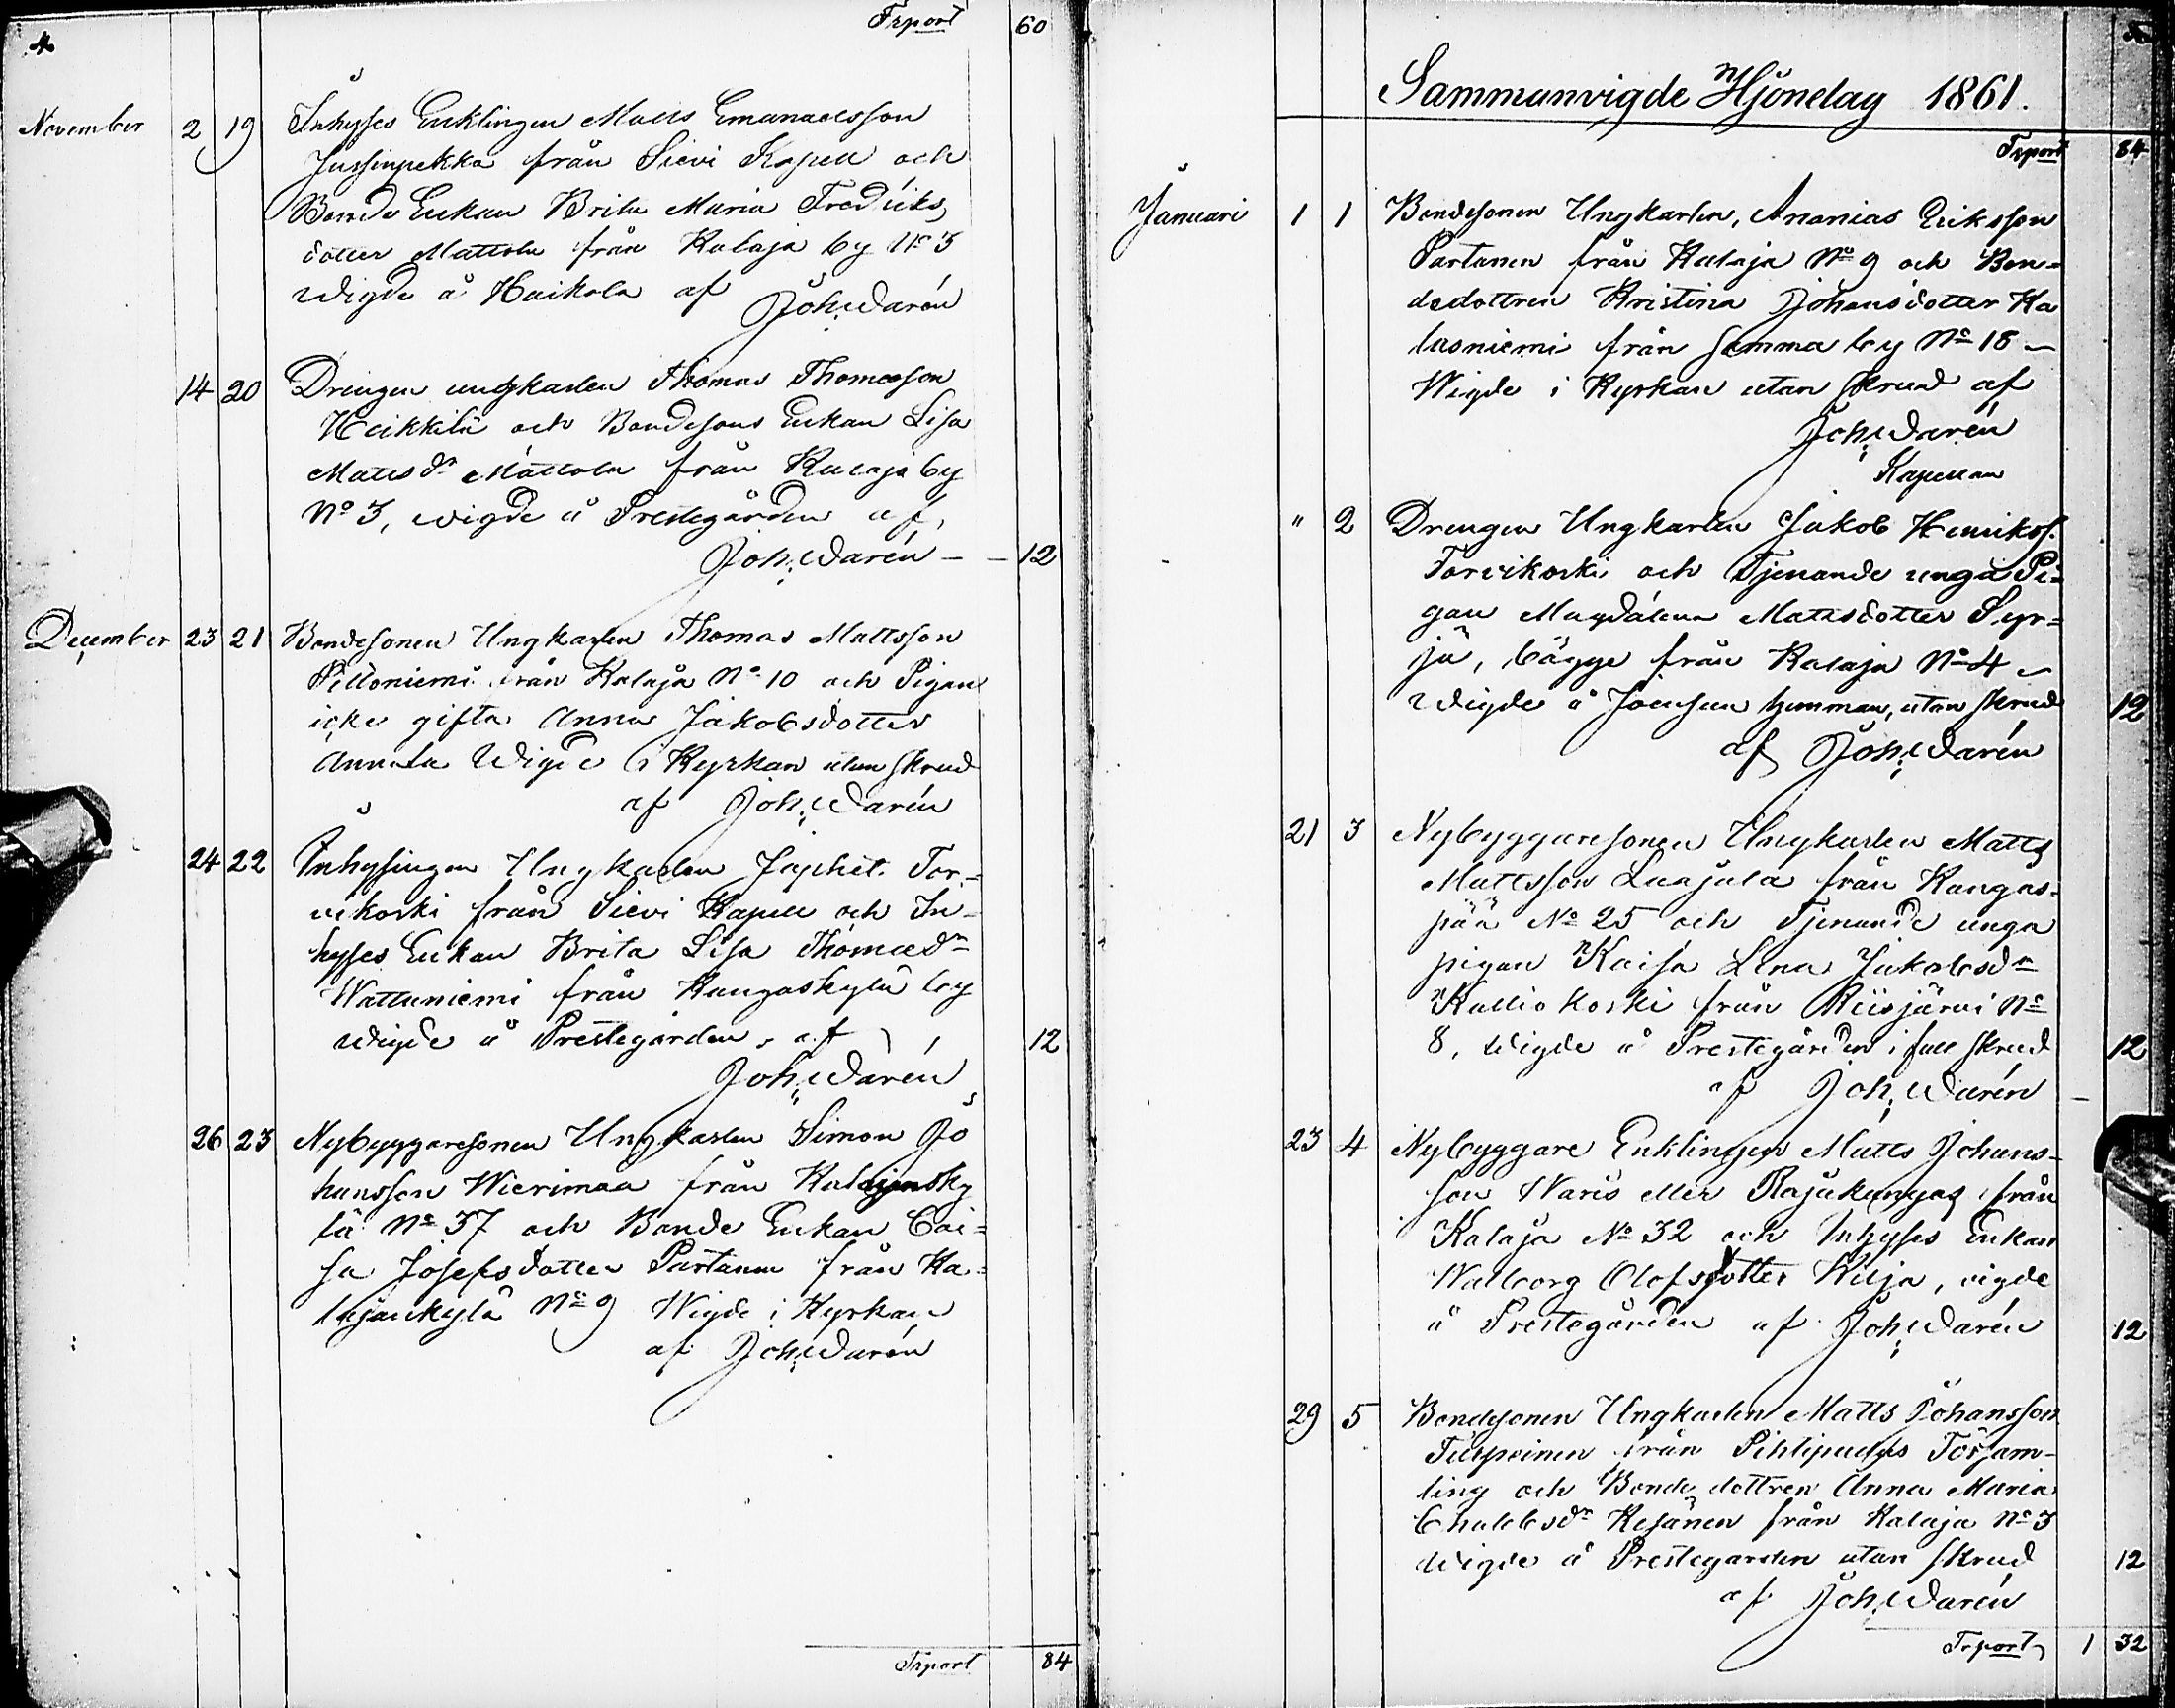 4
Trport 60
November 2 19 Inhyses Enklingen Matts Emanuelsson
Jussinpekka från Sievi Kapell och
Bonde Enkan Brita Maria Fredriks
dotter Mattola från Kalaja by No 3
Wigde å Haikola af
Joh: Warén
14 20 Drengen ungkarlen Thomas Thomasson
Heikkilä och Bondesons Enkan Lisa
Mattsdr Mattola från Kalaja by
No 3, wigde å Prestegården af
Joh: Warén — 12
December 23 21 Bondesonen Ungkarlen Thomas Mattsson
Pilloniemi från Kalaja No 10 och Pigan
icke gifta Anna Jakobsdotter
Annala Wigde i Kyrkan utan skrud
af Joh: Warén
24 22 Inhysingen Ungkarlen Japhet Tor-
vikoski från Sievi Kapell och In-
hyses Enkan Brita Lisa Thomædr
Wattuniemi från Kangaskylä by
Wigde å Prestegården, af 12
Joh: Warén
26 23 Nybyggaresonen Ungkarlen Simon Jo
hansson Wierimaa från Kalajansky
lä No 37 och Bonde Enkan Cai-
sa Josefsdotter Partanen från Ka-
lajankylä No 9 Wigde i Kyrkan
af Joh: Warén
Trport 84
Sammanvigde Hjonelag 1861.
Trport 84
Januari 1 1 Bondesonen Ungkarlen, Ananias Eriksson
Partanen från Kalaja No 9 och Bon-
dedottren Kristina Johansdotter Ka
lasniemi från samma by No 18 —
Wigde i Kyrkan utan skrud af
Joh: Warén
Kapellan
" 2 Drengen Ungkarlen Jakob Henrikss.
Torvikoski och Tjenande unga Pi-
gan Magdalena Mattsdotter Syr-
jä, bägge från Kalaja No 4 —
Wigde å Joensuu hemman, utan skrud 12
af Joh: Warén
21 3 Nybyggaresonen Ungkarlen Matts
Mattsson Luajala från Kangas-
pää No 25 och Tjenande unga
pigan Kaisa Lena Jakobsdr
Kalliokoski från Riisjärvi No
8, Wigde å Prestegården i full skrud 12
af Joh: Warén
23 4 Nybyggare Enklingen Matts Johans-
son Waris eller Rajakangas från
Kalaja No 32 och Inhyses Enkan
Walborg Olofsdotter Kilja, vigde
å Prestegården af Joh: Warén 12
29 5 Bondesonen Ungkarlen Matts Johansson
från Pihtipudas Försam-
ling och Bonde dottren Anna Maria
Kejanen från Kalaja No 3
Wigde å Prestegarden utan skrud 12
af Joh: Warén
Trport 1 32